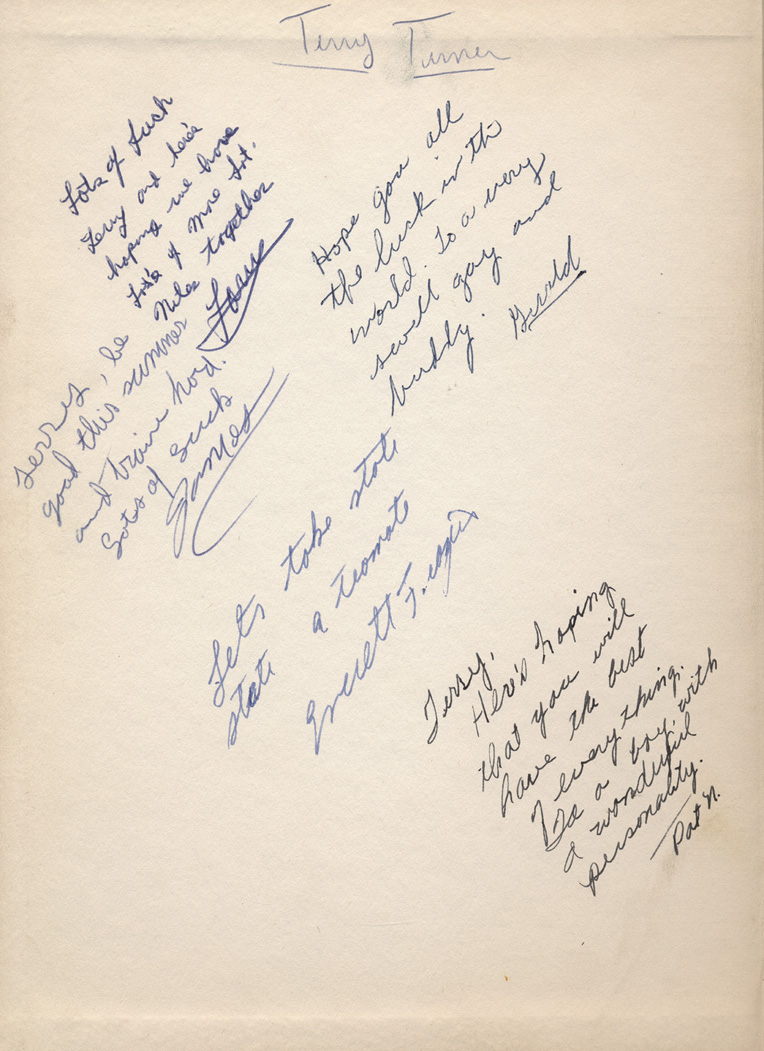 Terry Turner
Lots of Luck
Terry and here's
hoping we have
lot's of more Sat.
Nites together
Hope you all
the luck in the
world. To a very
swell guy and
buddy. Gerald
Terry, be
good this summer
and train hard.
Lots of Luck
James
Lets take state
state a teamate
Everett
Terry,
Here's hoping
that you will
have the best
of everything.
To a boy, with
a wonderful
personality.
Pat N.